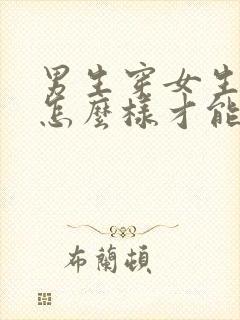 男生穿女生
怎麼樣才能
布蘭頓